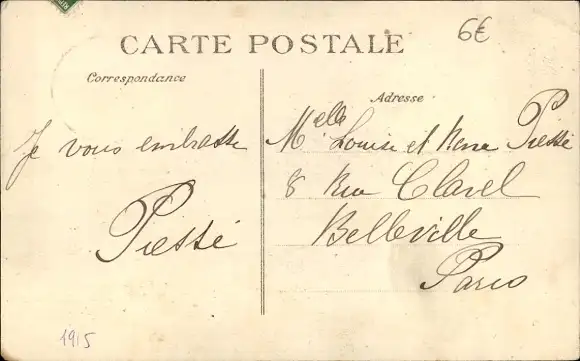 6€
CARTE POSTALE
Correspondance
Adresse
Je vous embrasse
Piessé
Melle Louise et Piessé
8 Rue Clavel
Belleville
Paris
1915